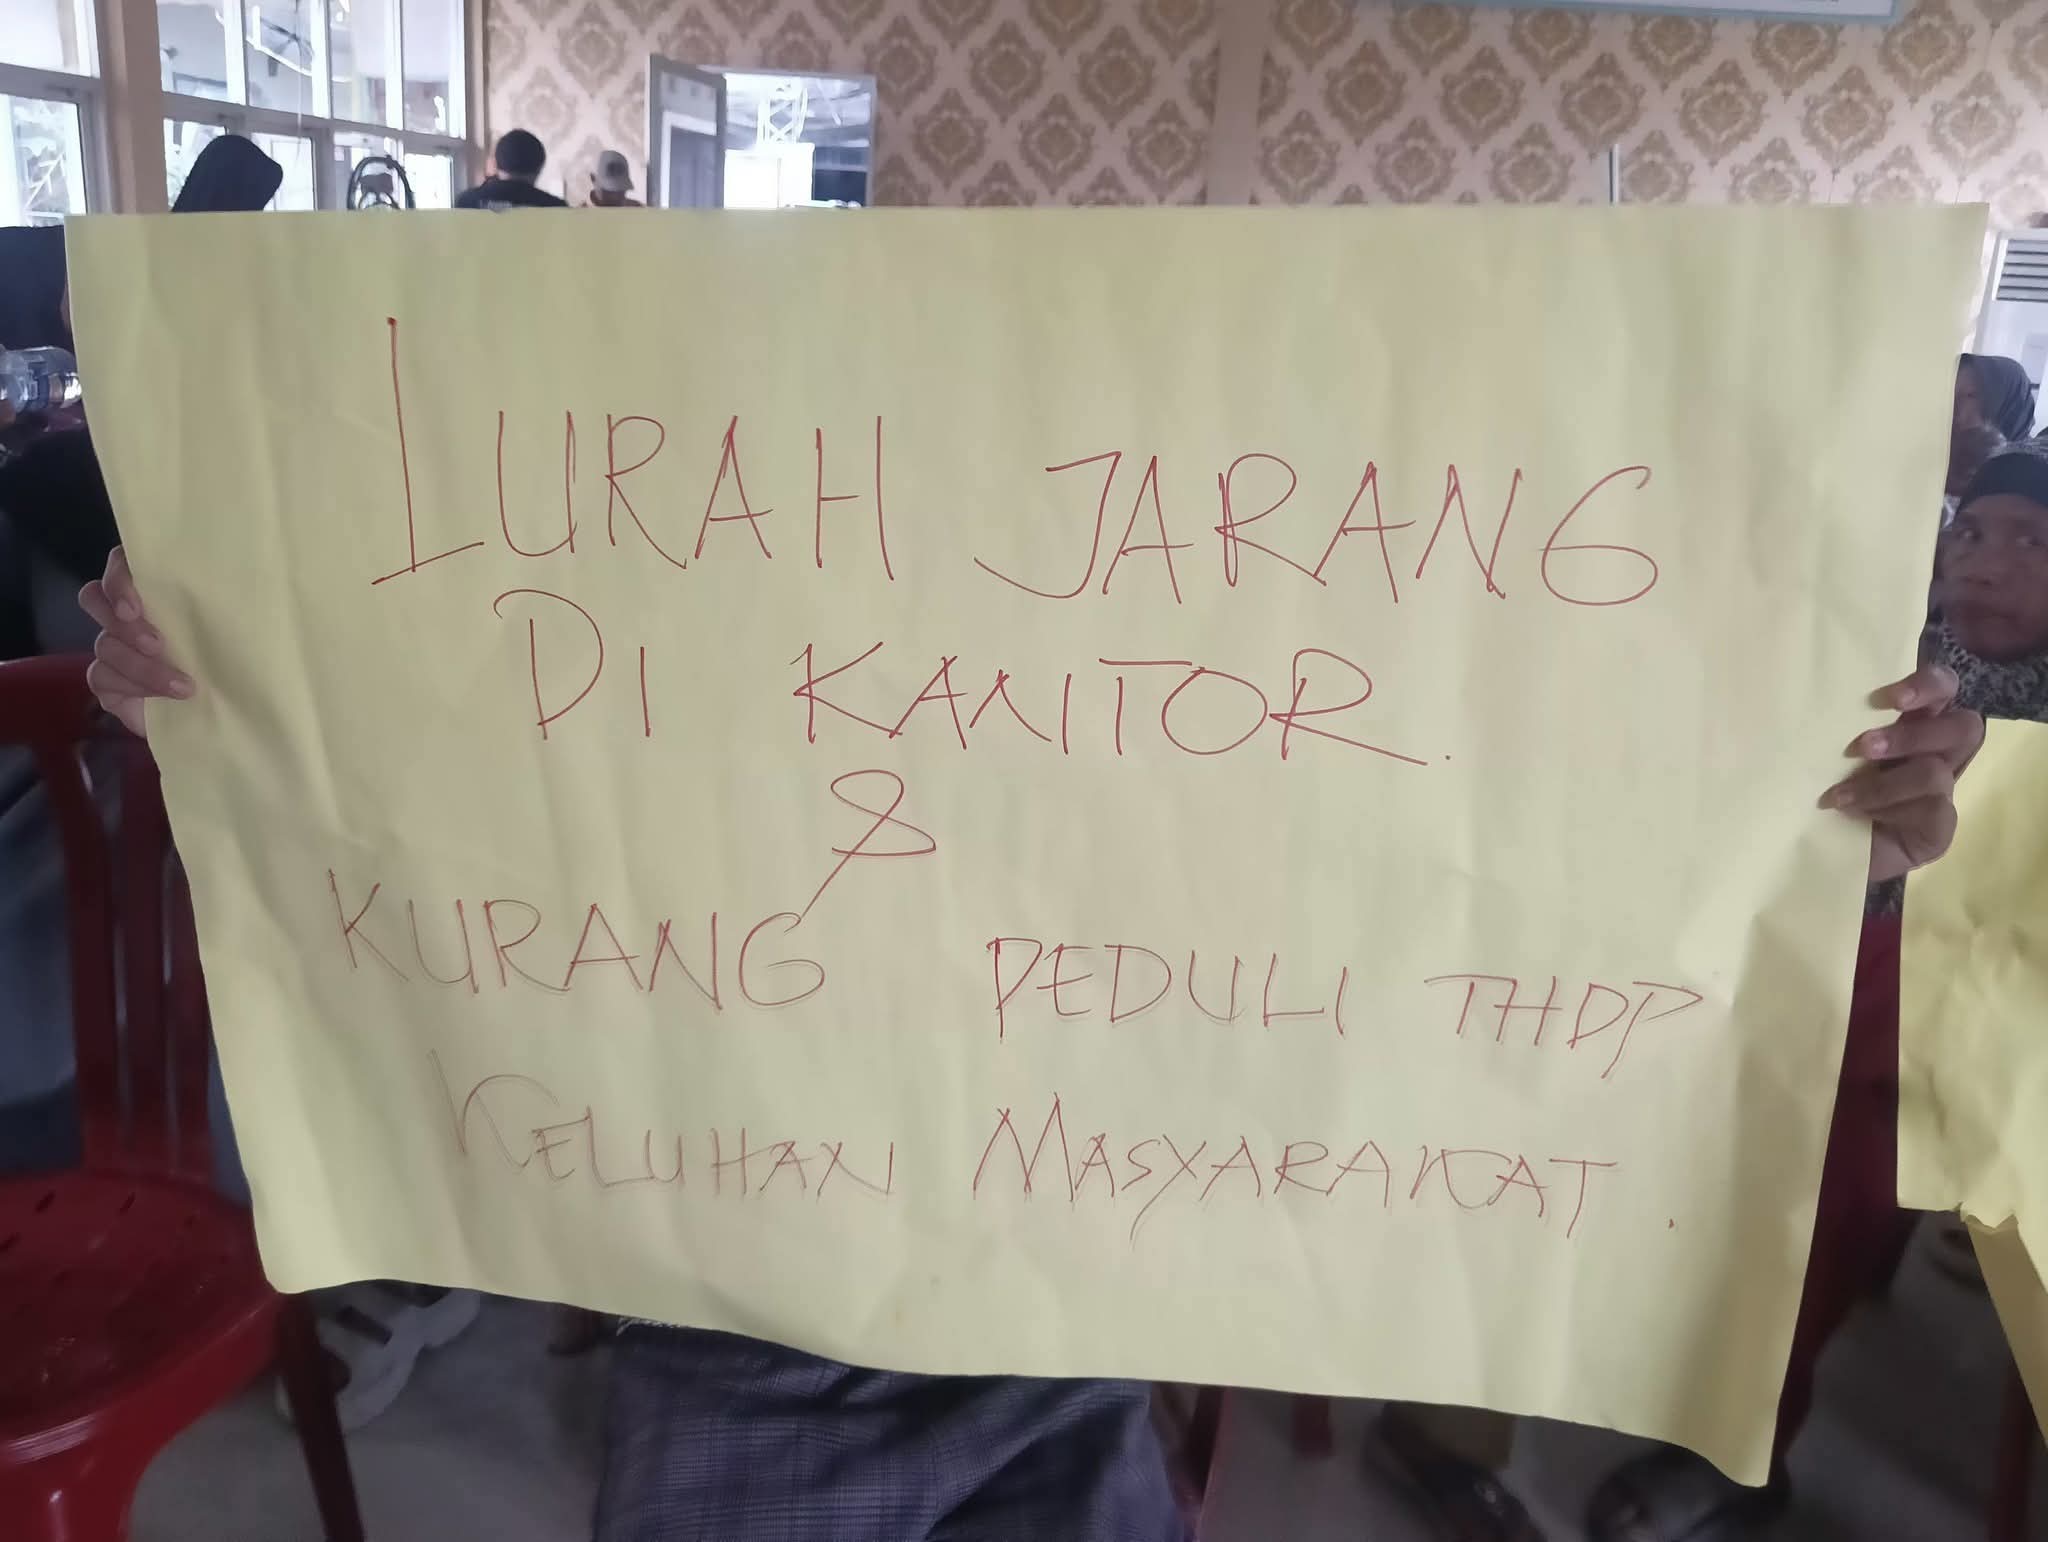 LURAH JARANG
DI KANTOR.
&
KURANG PEDULI THDP
KELUHAN MASYARAKAT.